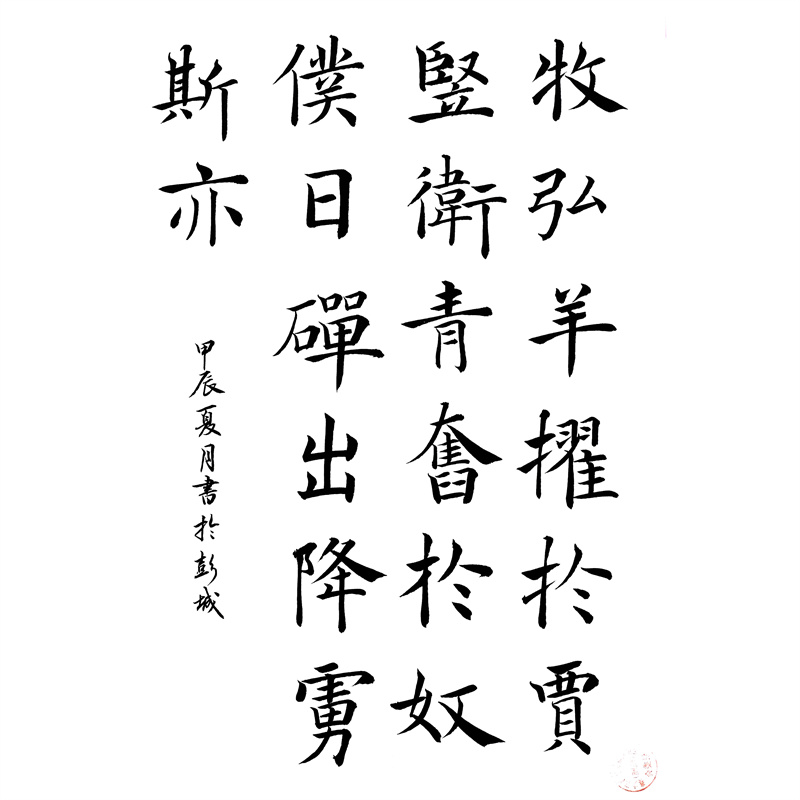 牧弘羊擢於賈
豎衛青奮於奴
僕日磾出降虜
斯亦
甲辰夏月書於彭城